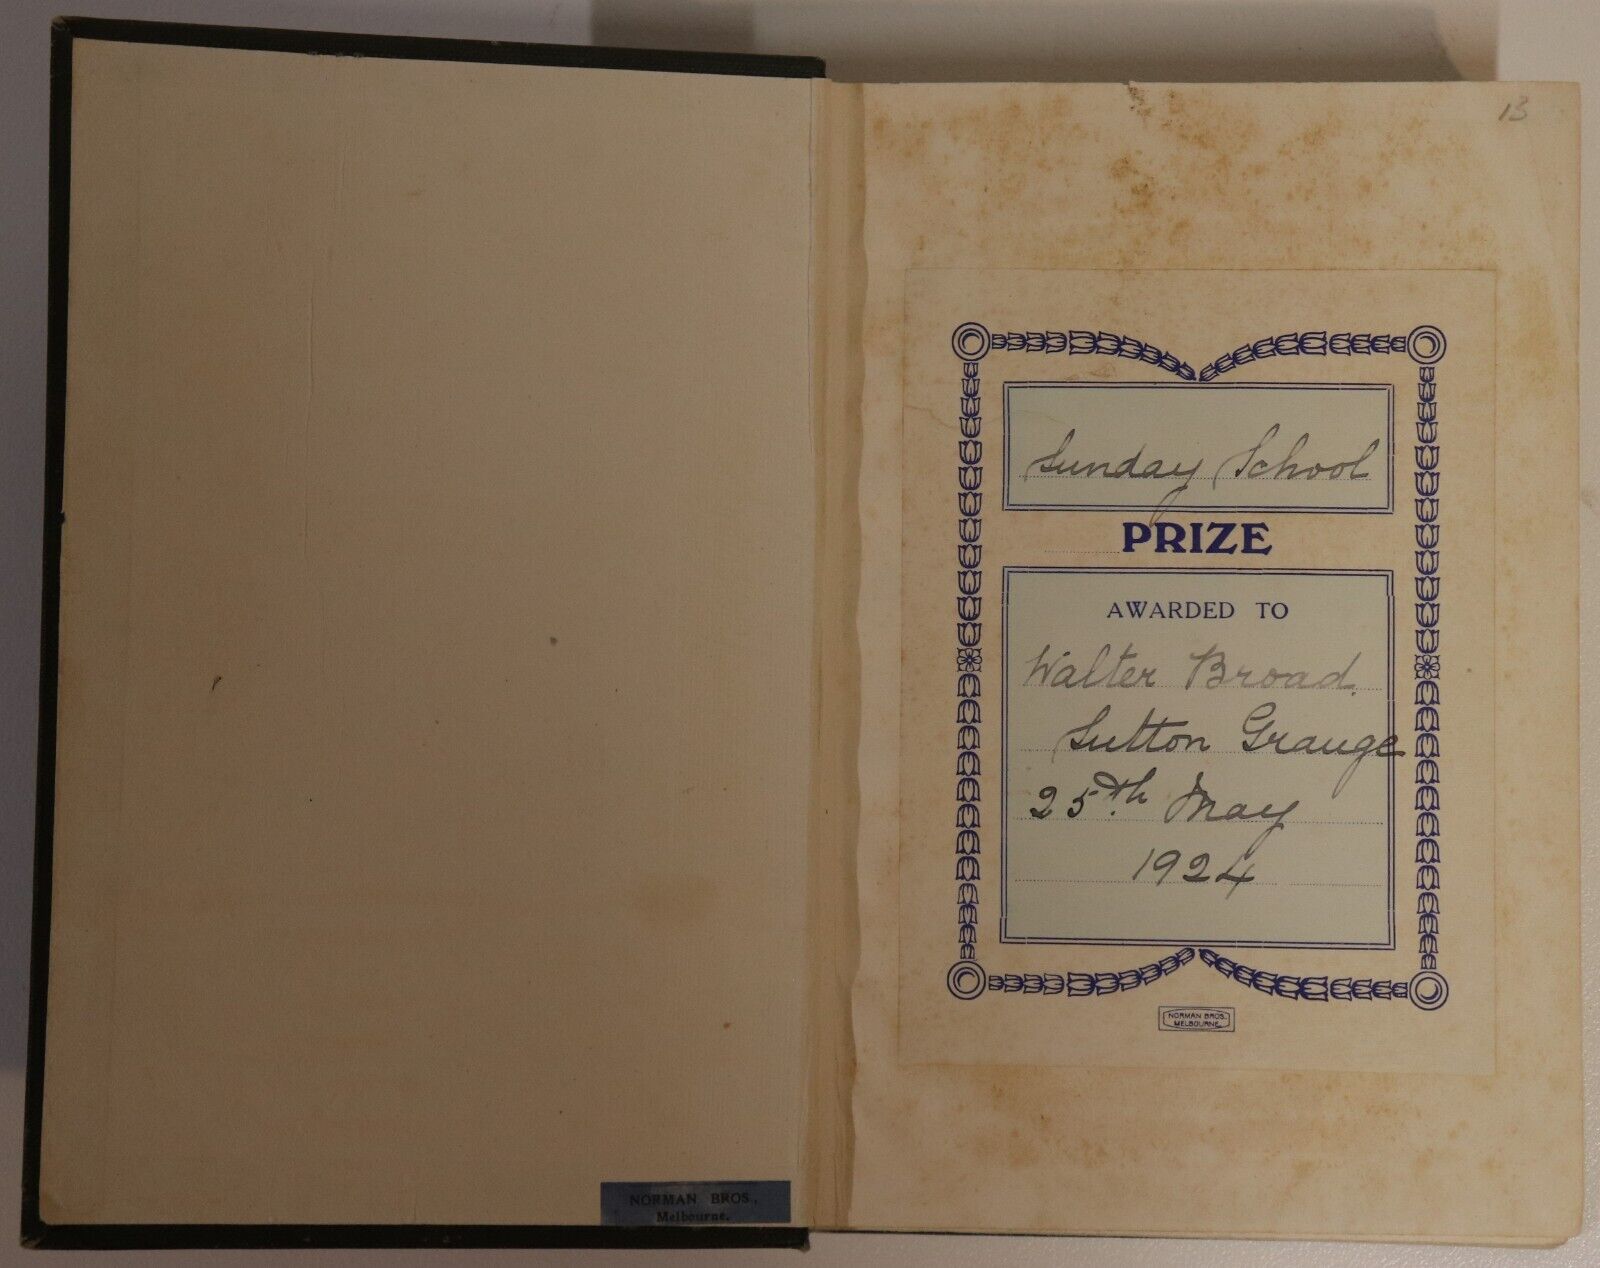 13
Sunday School
PRIZE
AWARDED TO
Walter Broad.
Sutton Grange
25th May
1924
NORMAN BROS.
MELBOURNE.
NORMAN BROS.,
Melbourne.